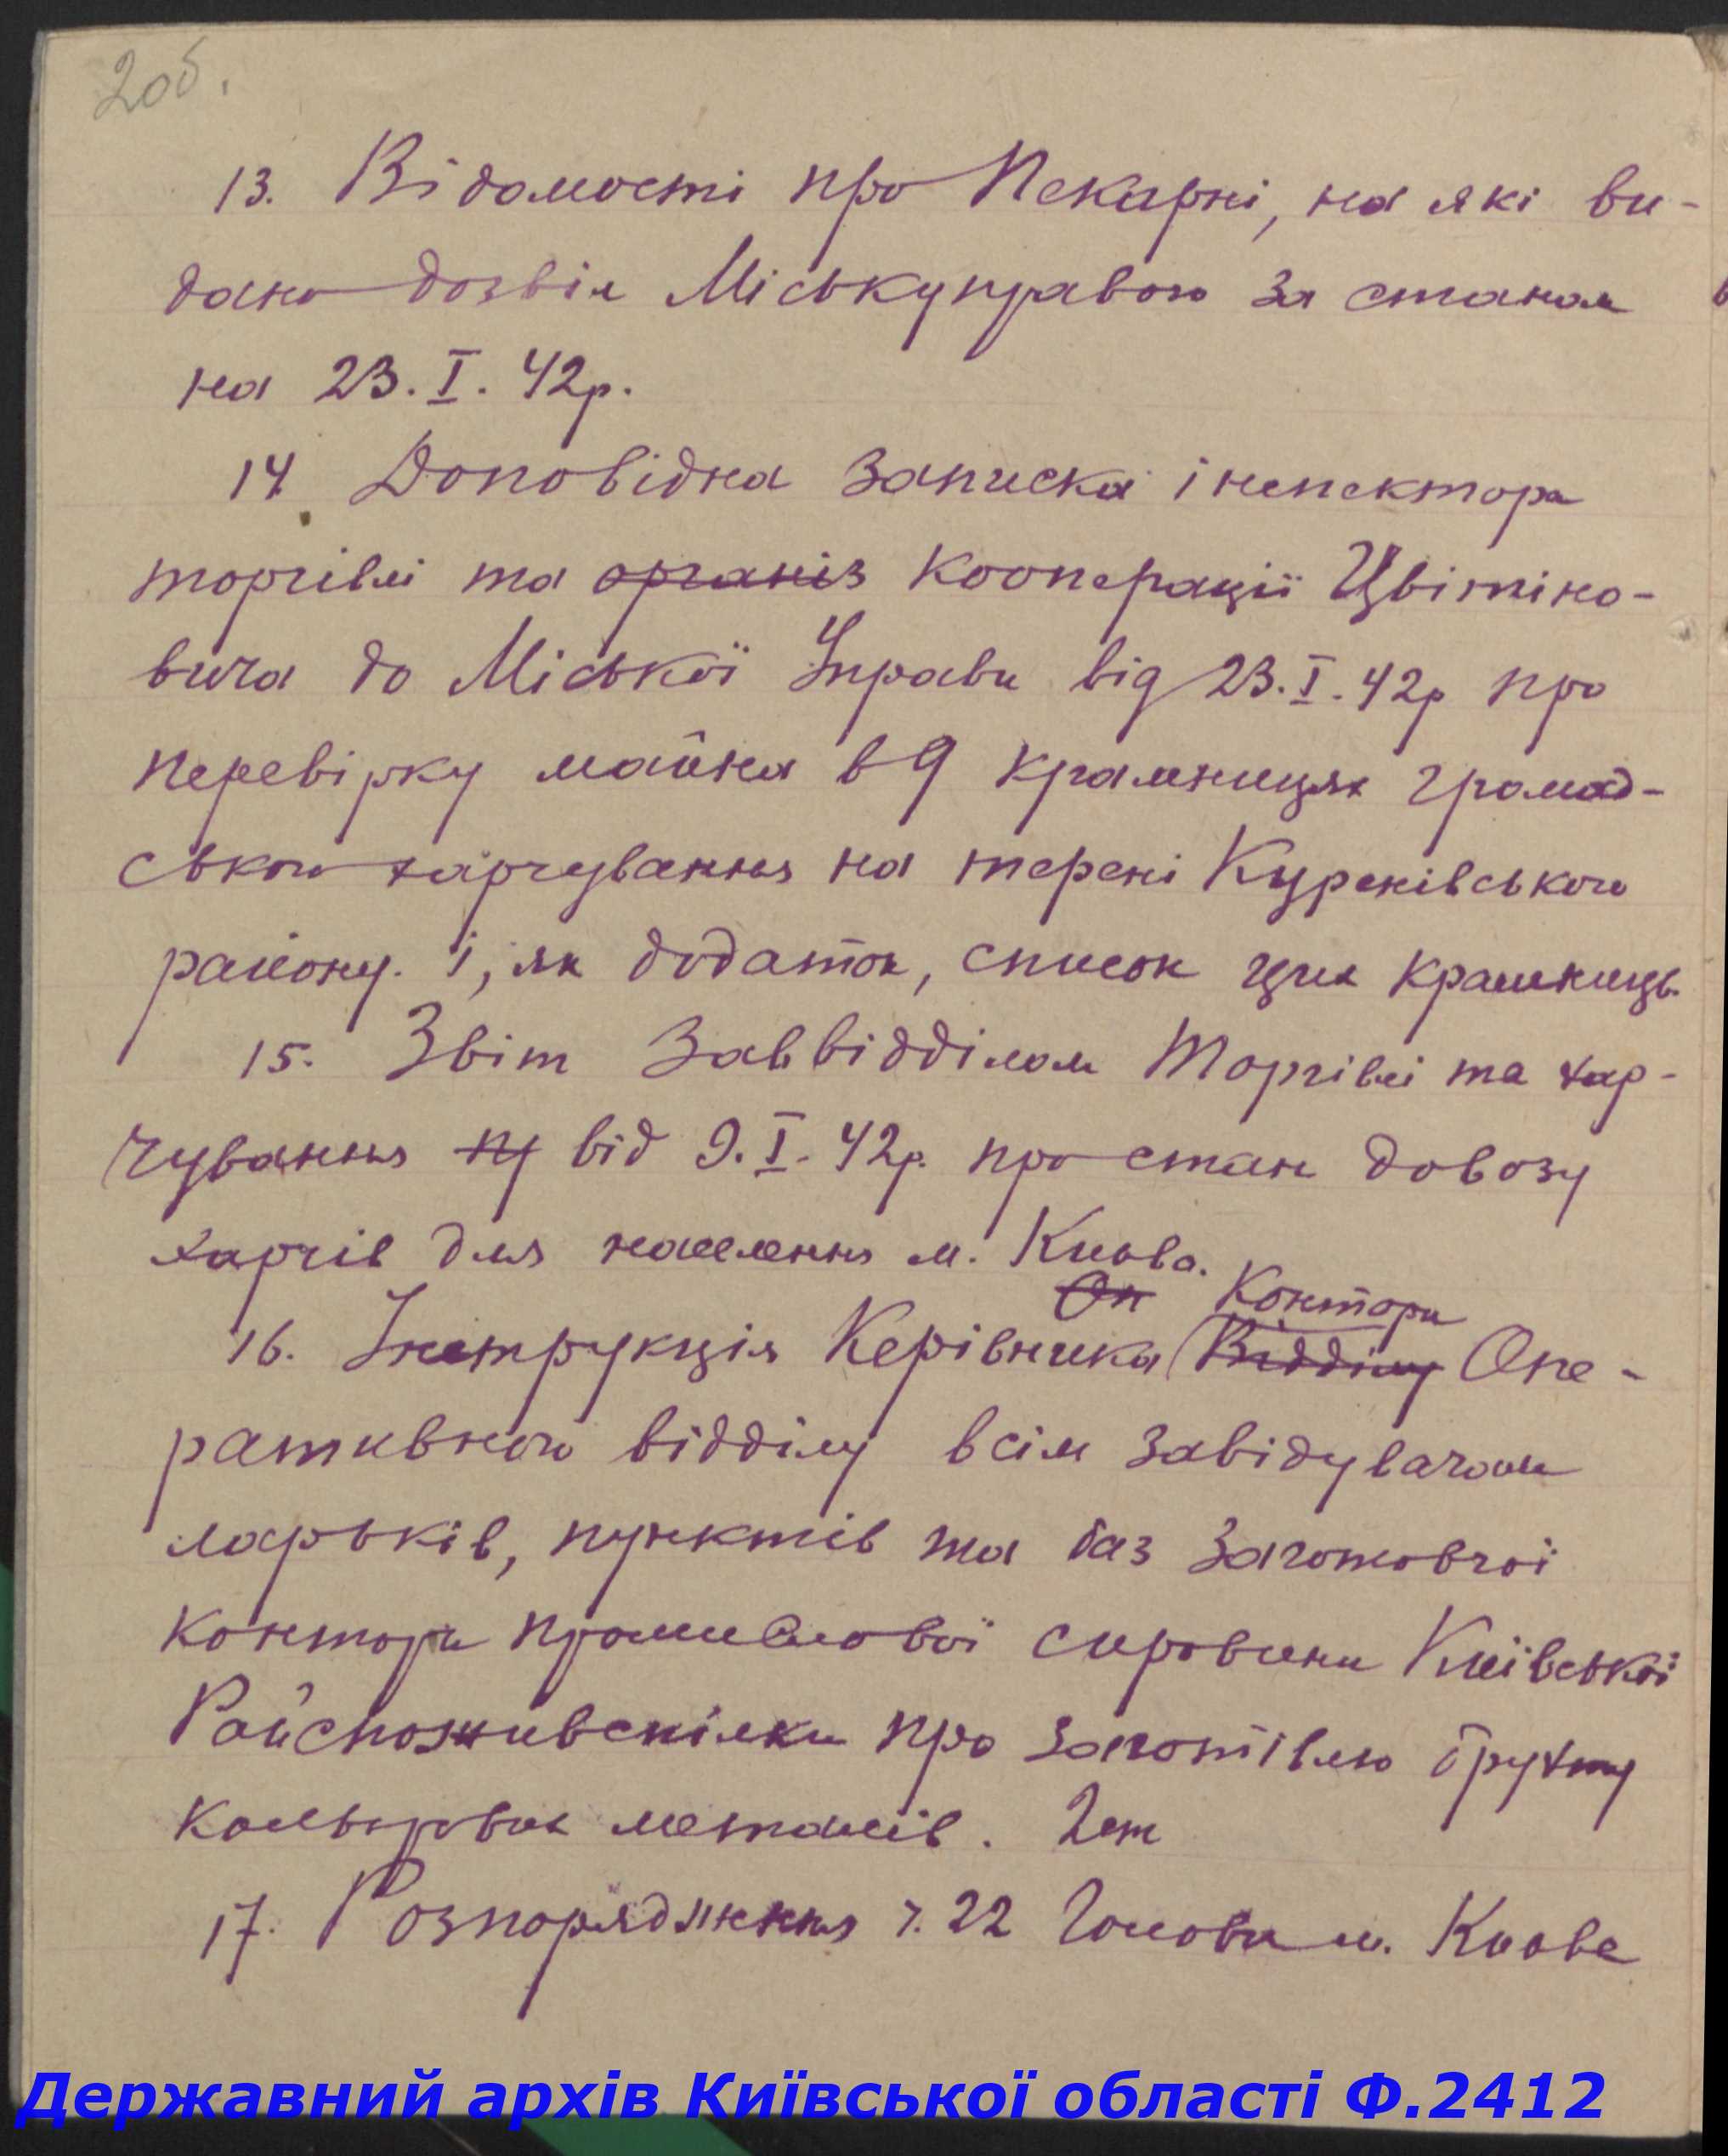 2об.
13. Відомості про Пекарні, на які ви-
дано дозвіл Міськуправою за станом
на 23.I.42р.
14. Доповідна записка інспектора
торгівлі та організ кооперації Цвітіно-
вича до Міської Управи від 23.I.42р про
перевірку майна в 9 крамницях громад-
ського харчування на терені Куренівського
району. і, як додаток, список цих крамниць.
15. Звіт Заввідділом Торгівлі та хар-
чування пр від 9.I.42р. про стан довозу
харчів для населення м. Києва.
Оп Контори
16. Інструкція Керівника Відділу Опе-
ративного відділу всім завідувачам
ларьків, пунктів та баз Заготовчої
контори промислової сировини Київської
Райспоживспілки про заготівлю брухту
кольорових металів. 2 ст
17. Розпорядження ч. 22 Голови м. Києва
Державний архів Київської області Ф.2412